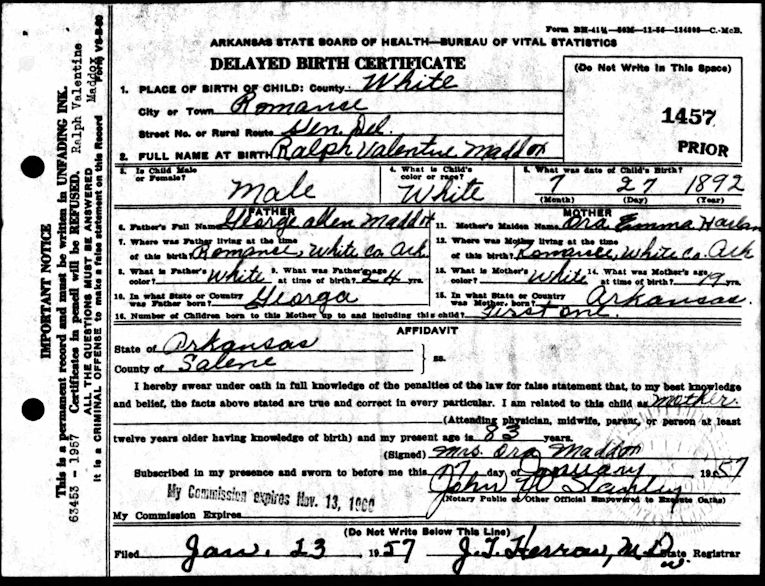 Form BH-41¼—50M—11-56—124009—C.-McB.
ARKANSAS STATE BOARD OF HEALTH—BUREAU OF VITAL STATISTICS
DELAYED BIRTH CERTIFICATE
(Do Not Write in This Space)
1457
PRIOR
1. PLACE OF BIRTH OF CHILD: County White
City or Town Romance
Street No. or Rural Route Gen. Del.
2. FULL NAME AT BIRTH Ralph Valentine Maddox
3. Is Child Male or Female? Male
4. What is Child's color or race? White
5. What was date of Child's Birth?
7 27 1892
(Month) (Day) (Year)
FATHER
6. Father's Full Name George allen Maddox
7. Where was Father living at the time
of this birth? Romance, White co. Ark
8. What is Father's color? White 9. What was Father's age at time of birth? 24 yrs.
10. In what State or Country was Father born? Georga
MOTHER
11. Mother's Maiden Name Ora Emma Harlan
12. Where was Mother living at the time
of this birth? Romance, White co. Ark
13. What is Mother's color? White 14. What was Mother's age at time of birth? 19 yrs.
15. In what State or Country was Mother born? Arkansas.
16. Number of Children born to this Mother up to and including this child? First one.
AFFIDAVIT
State of Arkansas
County of Salene
} ss.
I hereby swear under oath in full knowledge of the penalties of the law for false statement that, to my best knowledge
and belief, the facts above stated are true and correct in every particular. I am related to this child as mother.
(Attending physician, midwife, parent, or person at least
twelve years older having knowledge of birth) and my present age is 83 years.
(Signed) Mrs. Ora Maddox
Subscribed in my presence and sworn to before me this 17 day of January 1957
John W Stanley
(Notary Public or Other Official Empowered to Execute Oaths)
My Commission expires Nov. 13, 1960
My Commission Expires
(Do Not Write Below This Line)
Filed Jan. 23 1957 J. T. Herron, M.D. State Registrar
IMPORTANT NOTICE
This is a permanent record and must be written in UNFADING INK.
63453 - 1957 Certificates in pencil will be REFUSED. Ralph Valentine
ALL THE QUESTIONS MUST BE ANSWERED Maddox
It is a CRIMINAL OFFENSE to make a false statement on this Record Form VS-B-80